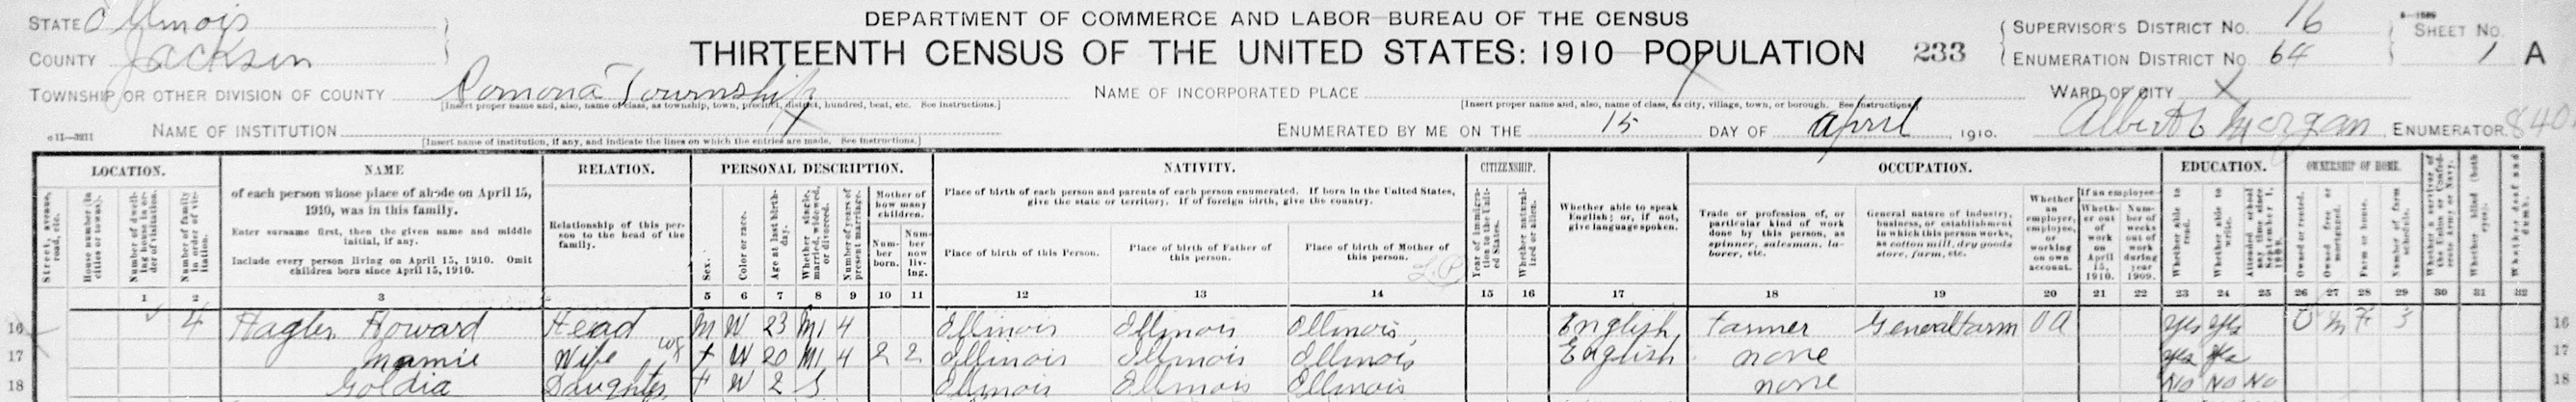 STATE Illinois
DEPARTMENT OF COMMERCE AND LABOR–BUREAU OF THE CENSUS
SUPERVISOR'S DISTRICT NO. 16
SHEET NO.
COUNTY Jackson
THIRTEENTH CENSUS OF THE UNITED STATES: 1910–POPULATION
233
ENUMERATION DISTRICT NO. 64
1 A
TOWNSHIP OR OTHER DIVISION OF COUNTY Pomona Township
NAME OF INCORPORATED PLACE
WARD OF CITY X
[Insert proper name and, also, name of class, as township, town, precinct, district, hundred, beat, etc. See instructions.]
[Insert proper name and, also, name of class, as city, village, town, or borough. See instructions.]
NAME OF INSTITUTION X
ENUMERATED BY ME ON THE 15 DAY OF April, 1910.
Albert Morgan, ENUMERATOR.
[Insert name of institution, if any, and indicate the lines on which the entries are made. See instructions.]
LOCATION. NAME RELATION. PERSONAL DESCRIPTION. NATIVITY. CITIZENSHIP. OCCUPATION. EDUCATION. OWNERSHIP OF HOME.
Street, avenue, road, etc.
House number (in cities or towns).
Number of dwelling house in order of visitation.
Number of family in order of visitation.
of each person whose place of abode on April 15, 1910, was in this family.
Enter surname first, then the given name and middle initial, if any.
Include every person living on April 15, 1910. Omit children born since April 15, 1910.
Relationship of this person to the head of the family.
Sex.
Color or race.
Age at last birthday.
Whether single, married, widowed, or divorced.
Number of years of present marriage.
Mother of how many children.
Number born.
Number now living.
Place of birth of each person and parents of each person enumerated. If born in the United States, give the state or territory. If of foreign birth, give the country.
Place of birth of this Person.
Place of birth of Father of this person.
Place of birth of Mother of this person.
Year of immigration to the United States.
Whether naturalized or alien.
Whether able to speak English; or, if not, give language spoken.
Trade or profession of, or particular kind of work done by this person, as spinner, salesman, laborer, etc.
General nature of industry, business, or establishment in which this person works, as cotton mill, dry goods store, farm, etc.
Whether an employer, employee, or working on own account.
If an employee—
Whether out of work on April 15, 1910.
Number of weeks out of work during year 1909.
Whether able to read.
Whether able to write.
Attended school any time since September 1, 1909.
Owned or rented.
Owned free or mortgaged.
Farm or house.
Number of farm schedule.
Whether a survivor of the Union or Confederate Army or Navy.
Whether blind (both eyes).
Whether deaf and dumb.
1 2 3 5 6 7 8 9 10 11 12 13 14 15 16 17 18 19 20 21 22 23 24 25 26 27 28 29 30 31 32
16 4 Hagler Howard Head M W 23 M1 4 Illinois Illinois Illinois English Farmer General farm OA yes yes O M F 3 16
17 Mamie Wife F W 20 M1 4 2 2 Illinois Illinois Illinois English none yes yes 17
18 Goldia Daughter F W 2 S Illinois Illinois Illinois none No No No 18